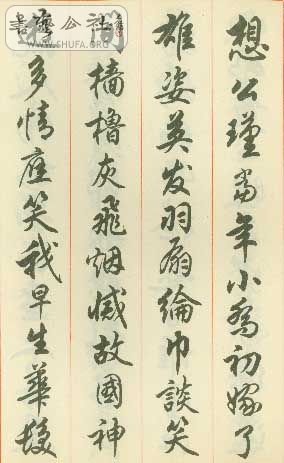 想公瑾當年小喬初嫁了
雄姿英发羽扇綸巾談笑
間檣櫓灰飛烟滅故國神
多情應笑我早生華髮
書藝公社
WWW.SHUFA.ORG